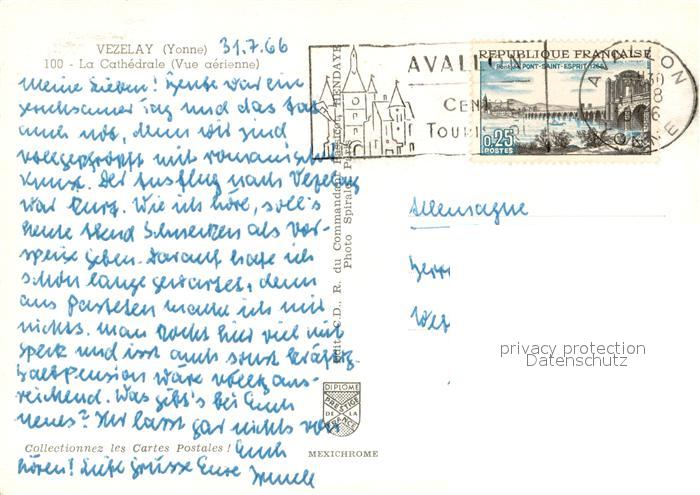 VEZELAY (Yonne) 31.7.66
100 - La Cathédrale (Vue aérienne)
Meine Lieben! Heute war ein
geruhsamer Tag und das tat
auch not, denn wir sind
vollgepfropft mit romanischer
Kunst. Der Ausflug nach Vezelay
war kurz. Wie ich höre, soll's
heute Abend Schnecken als Vor-
speise geben. Darauf habe ich
schon lange gewartet, denn
aus Pasteten mache ich mir
nichts. Man kocht hier viel mit
Speck und isst auch sonst kräftig.
Halbpension wäre völlig aus-
reichend. Was gibt's bei Euch
neues? Ihr lasst gar nichts von
Euch
hören! Liebe Grüsse Eure
Collectionnez les Cartes Postales !
MEXICHROME
DIPLOME
PRESTIGE
DE LA
FRANCE
R. du Commandant HENDAYE
Photo Spirale, Paris
AVALLON
CEN
TOURIS
REPUBLIQUE FRANÇAISE
PONT-SAINT-ESPRIT
0,25
POSTES
AVALLON
YONNE
Allemagne
Herr
privacy protection
Datenschutz